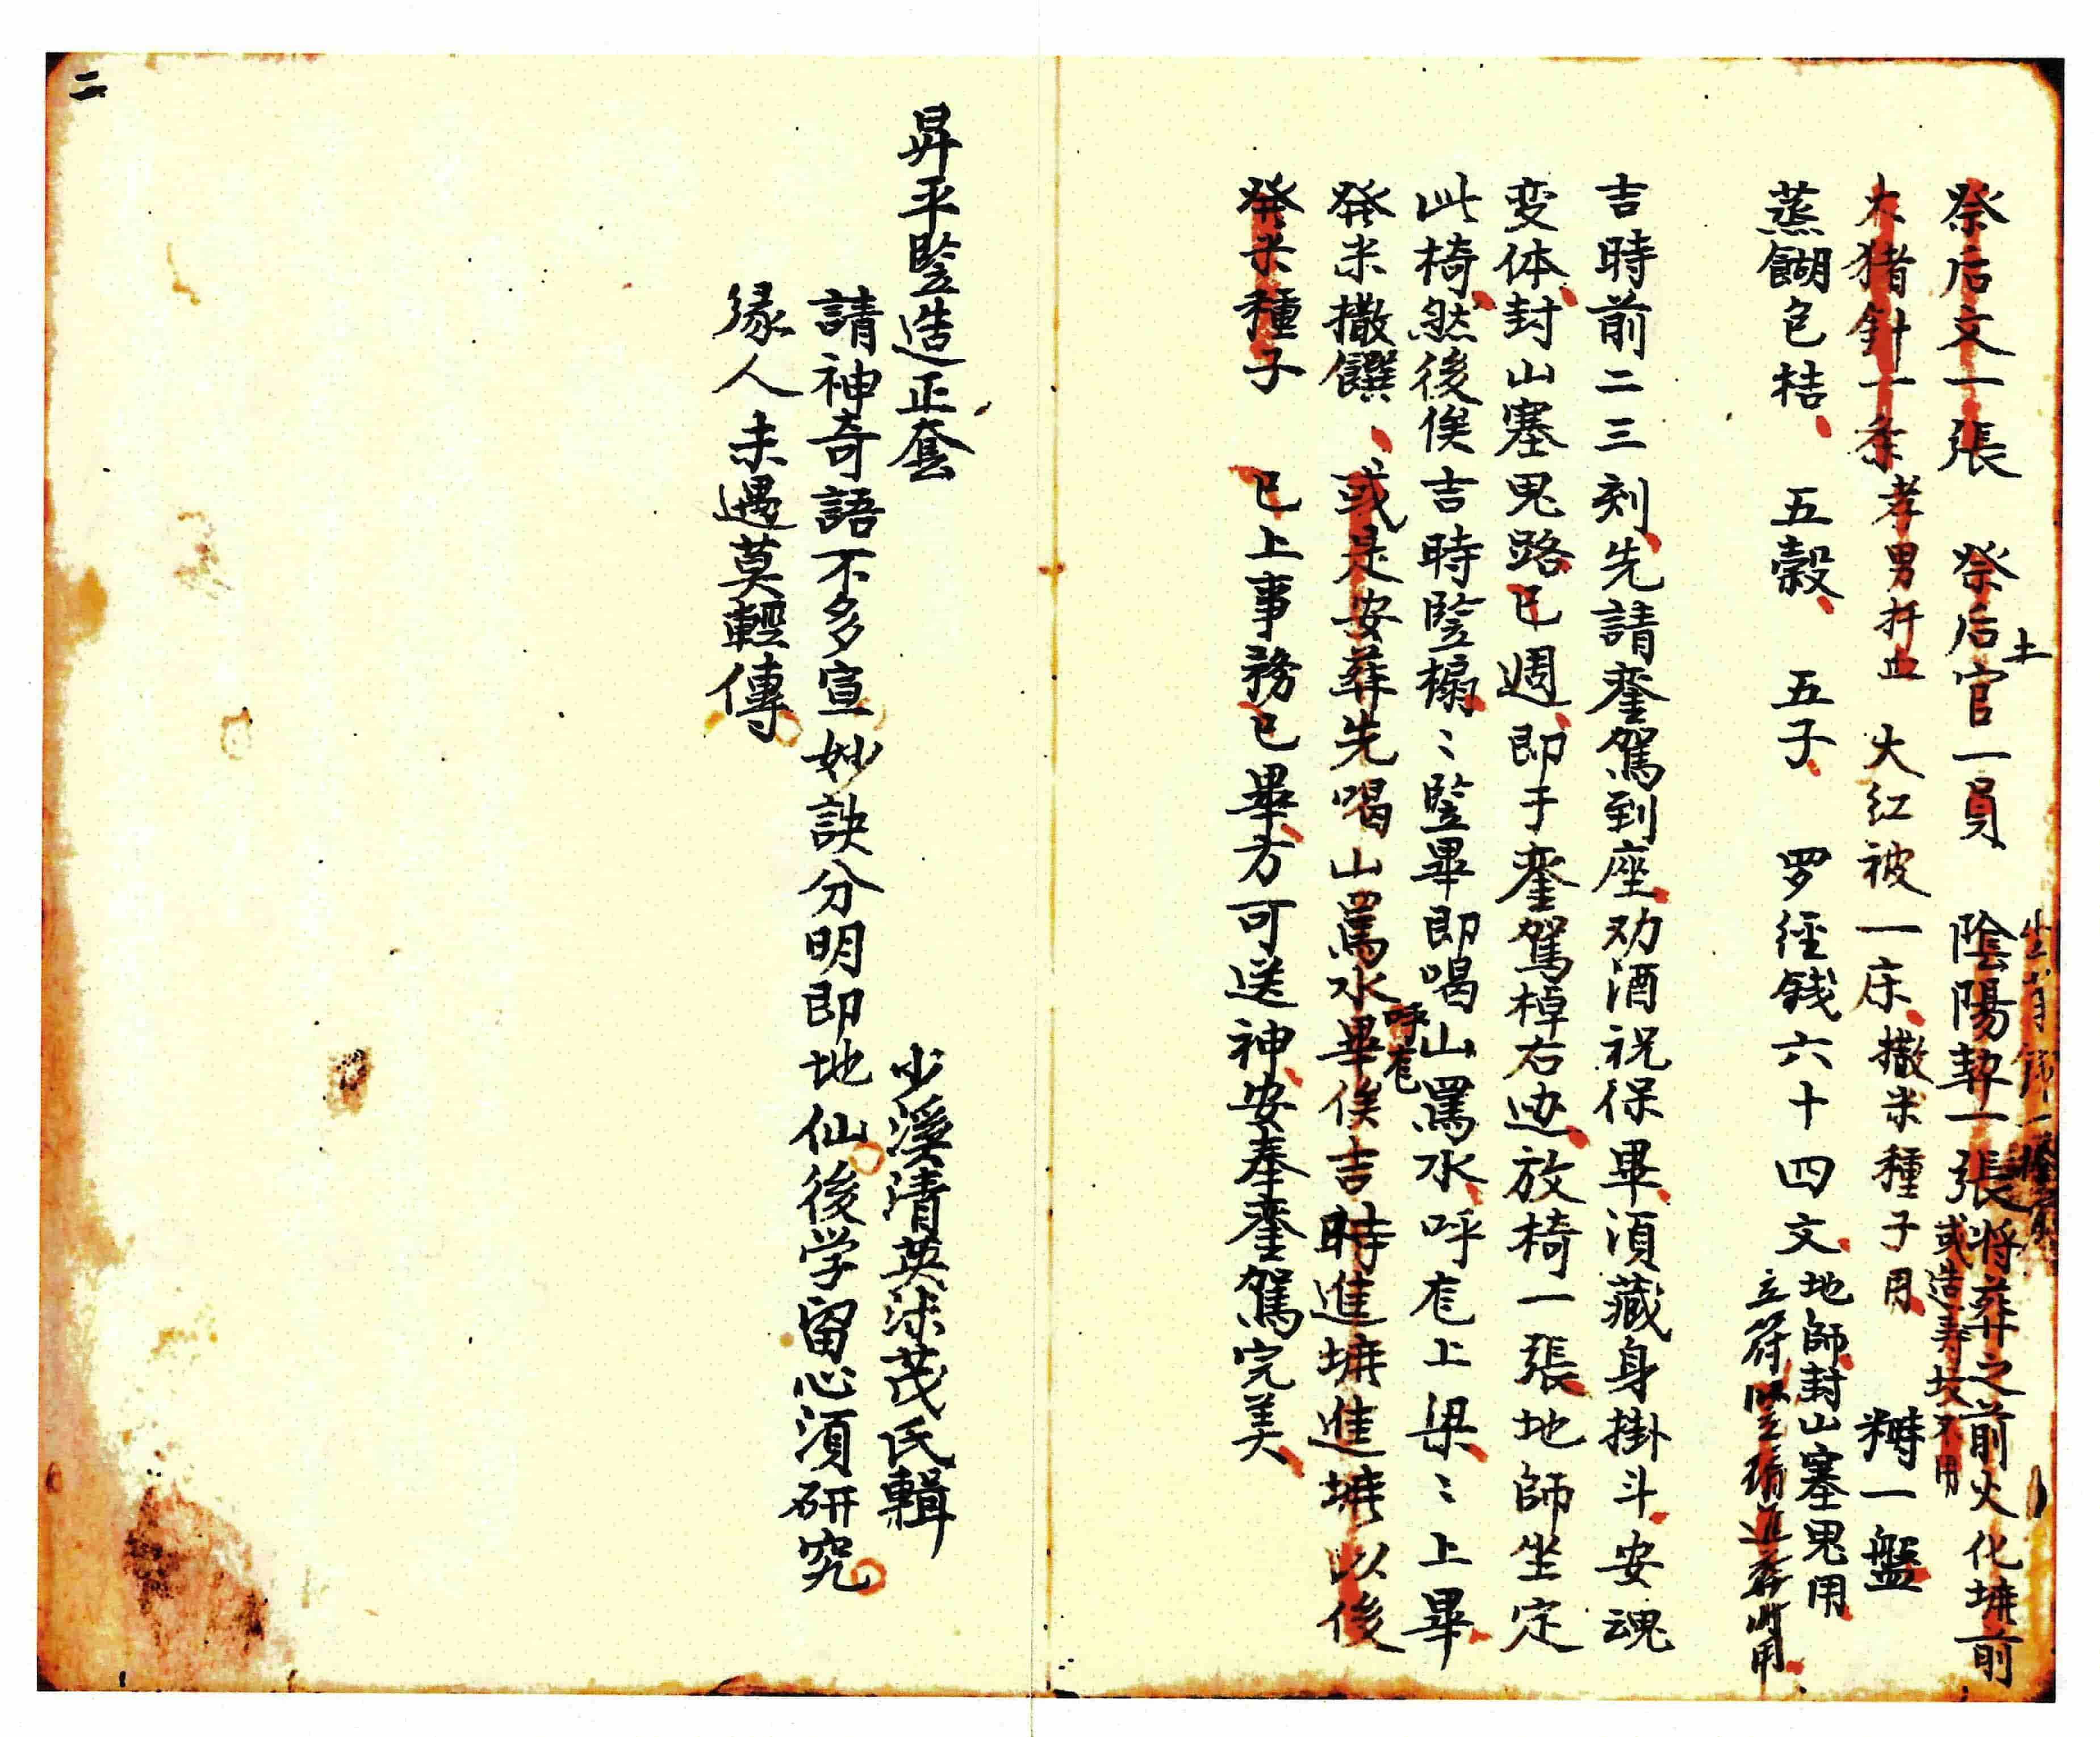 祭后文一張　祭后土官一員　陰陽契一張將葬之前火化壙前
或造寿坟不用
大猪針一条孝男扦血　大红被一床、撒米種子用　一盤
蒸餬包桔、　五穀、　五子、　罗経銭六十四文、地師封山塞鬼用
立符竪碣進葬所用
吉時前二三刻、先請鑾駕到座、劝酒祝保畢、須藏身掛斗、安魂
变体、封山塞鬼路、已週、即于鑾駕棹右边、放椅一張、地師坐定
此椅、然後俟吉時竪榻、〻竪畢即喝山罵水、呼庬上梁、〻上畢、
発米撒饌、　或是安葬先喝山罵水呼庬畢俟吉時進壙進壙以後
発米種子　已上事務已畢、方可送神、安奉鑾駕完美、
二
昇平竪造正套　　少溪清英沫茂氏輯
請神奇語不多宣妙訣分明即地仙後学留心須研究
缘人未遇莫輕傳